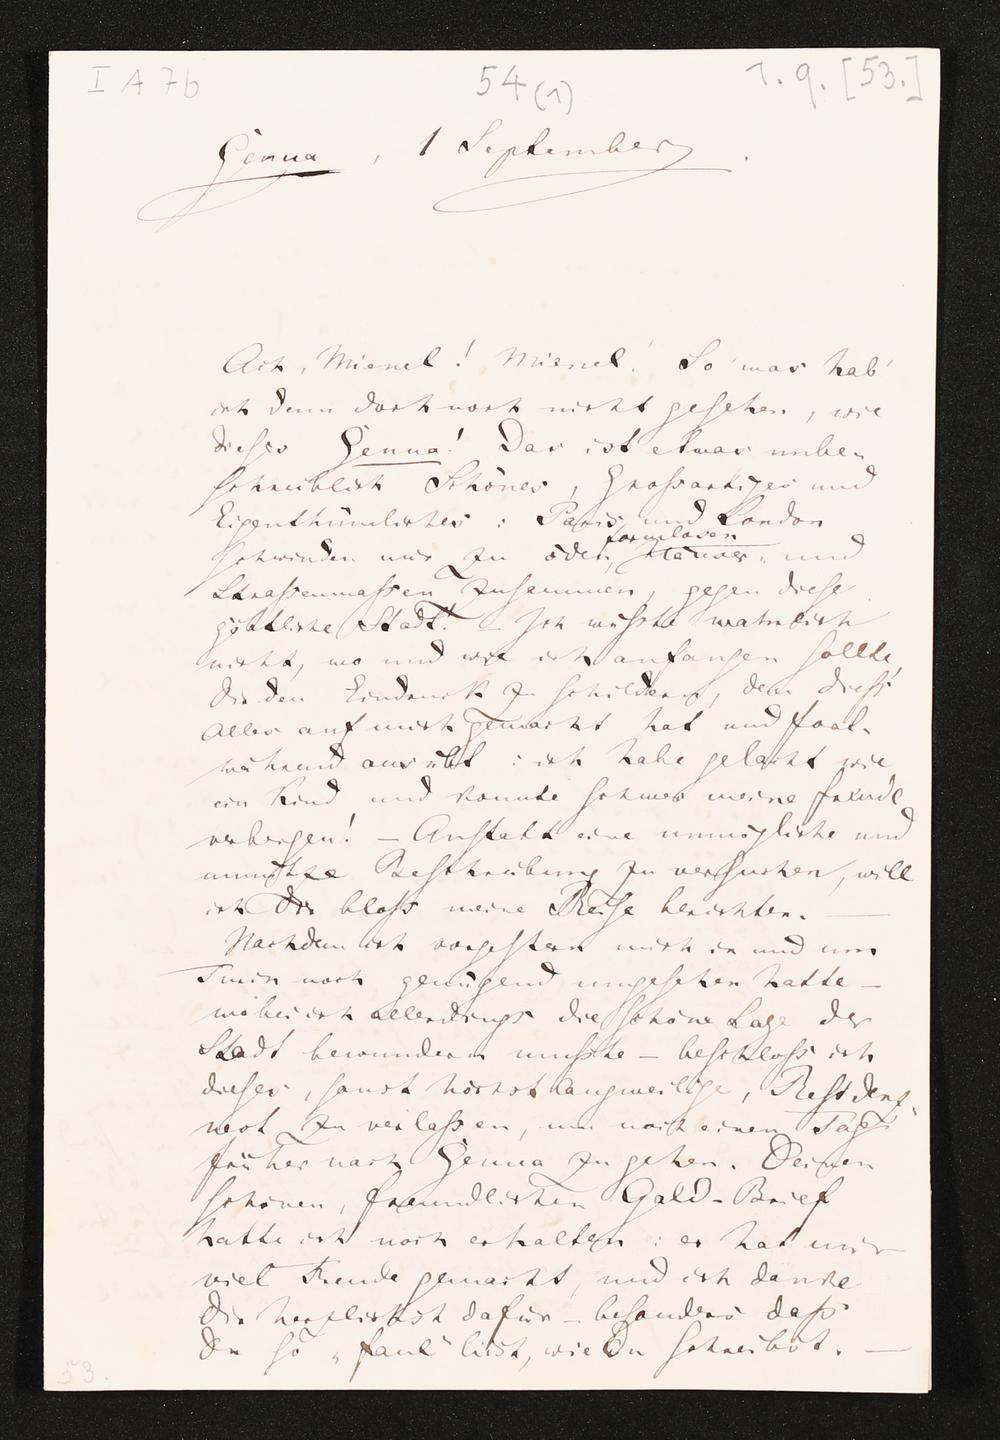 I A 7b
54 (1)
1. 9. [53.]
Genua, 1 September.
Ach, Mienel! Mienel! So 'was hab'
ich denn doch noch nicht gesehen, wie
dieses Genua! Das ist etwas unbe-
schreiblich Schönes, Grossartiges und
Eigenthümliches: Paris und London
schwinden mir zu öden, formlosen Häuser- und
Strassenmassen zusammen, gegen diese
göttliche Stadt! – Ich wüsste wahrlich
nicht, wo und wie ich anfangen sollte,
Dir den Eindruck zu schildern, den diess
Alles auf mich gemacht hat und fort-
während ausübt: ich habe gelacht wie
ein Kind und konnte schwer meine Freude
verbergen! – Anstatt eine unmögliche und
unnütze Beschreibung zu versuchen, will
ich Dir bloss meine Reise berichten. —
Nachdem ich vorgestern mich in und um
Turin noch genügend umgesehen hatte –
wobei ich allerdings die schöne Lage der
Stadt bewundern musste – beschloss ich
dieses, sonst höchst langweilige, Residenz-
nest zu verlassen, um noch einen Tag
früher nach Genua zu gehen. Deinen
schönen, freundlichen Geld-Brief
hatte ich noch erhalten: er hat mir
viel Freude gemacht, und ich danke
Dir herzlichst dafür – besonders dass
Du so „faul" bist, wie Du schreibst. —
53.